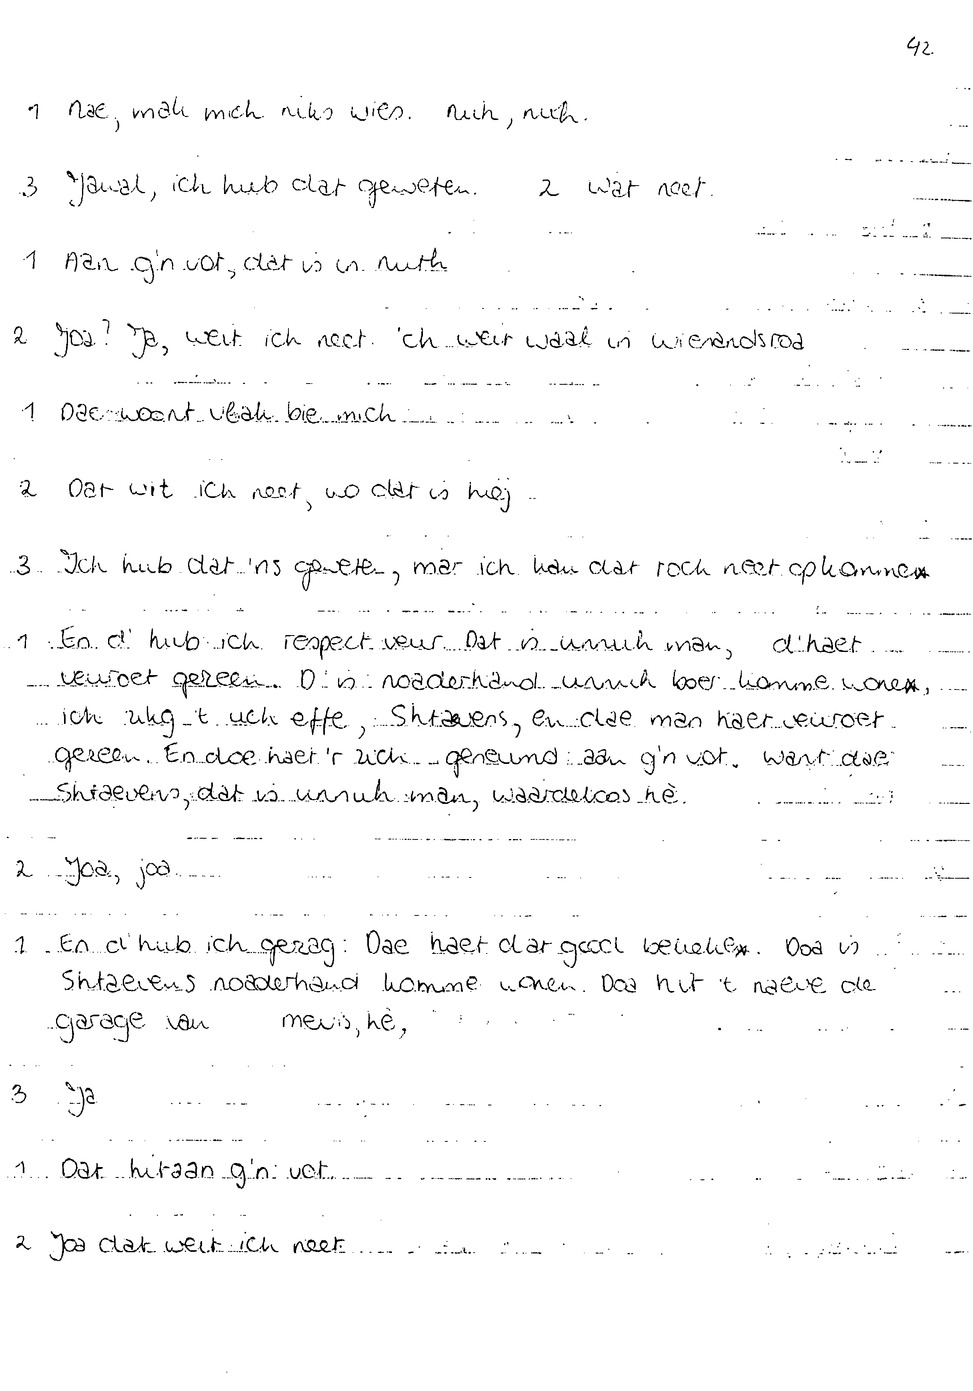 42.
1 Nae, mak mich niks wies. Nuh, nuh.
3 Jawal, ich hub dat geweten. 2 wat neet.
1 Aan g'n vot, dat is in Nuth
2 Joa? Ja, weit ich neet. 'ch weit waal in Wienandsroa
1 Dae woont vlak bie mich
2 Dat wit ich neet, wo dat is hiej
3 Ich hub dat 'ns gewete, mar ich kan dat toch neet op komme
1 En d' hub ich respect veur. Dat is unnuh man, d'haet
veuroet gezeen. D'is noaderhand unnuh boer komme wone,
ich zikg 't uch effe, Shtaevens, en dae man haet veuroet
gezeen. En doe haet 'r zich geneumd aan g'n vot. want dae
Shtaevens, dat is unnuh man, waardeloos hè.
2 Joa, joa
1 En d'hub ich gezag: Dae haet dat good bekeke. Doa is
Shtaevens noaderhand komme wonen. Doa hit 't naeve de
garage van Mevis, hè,
3 Ja
1 Dat hit aan g'n vot
2 Joa dat weit ich neet